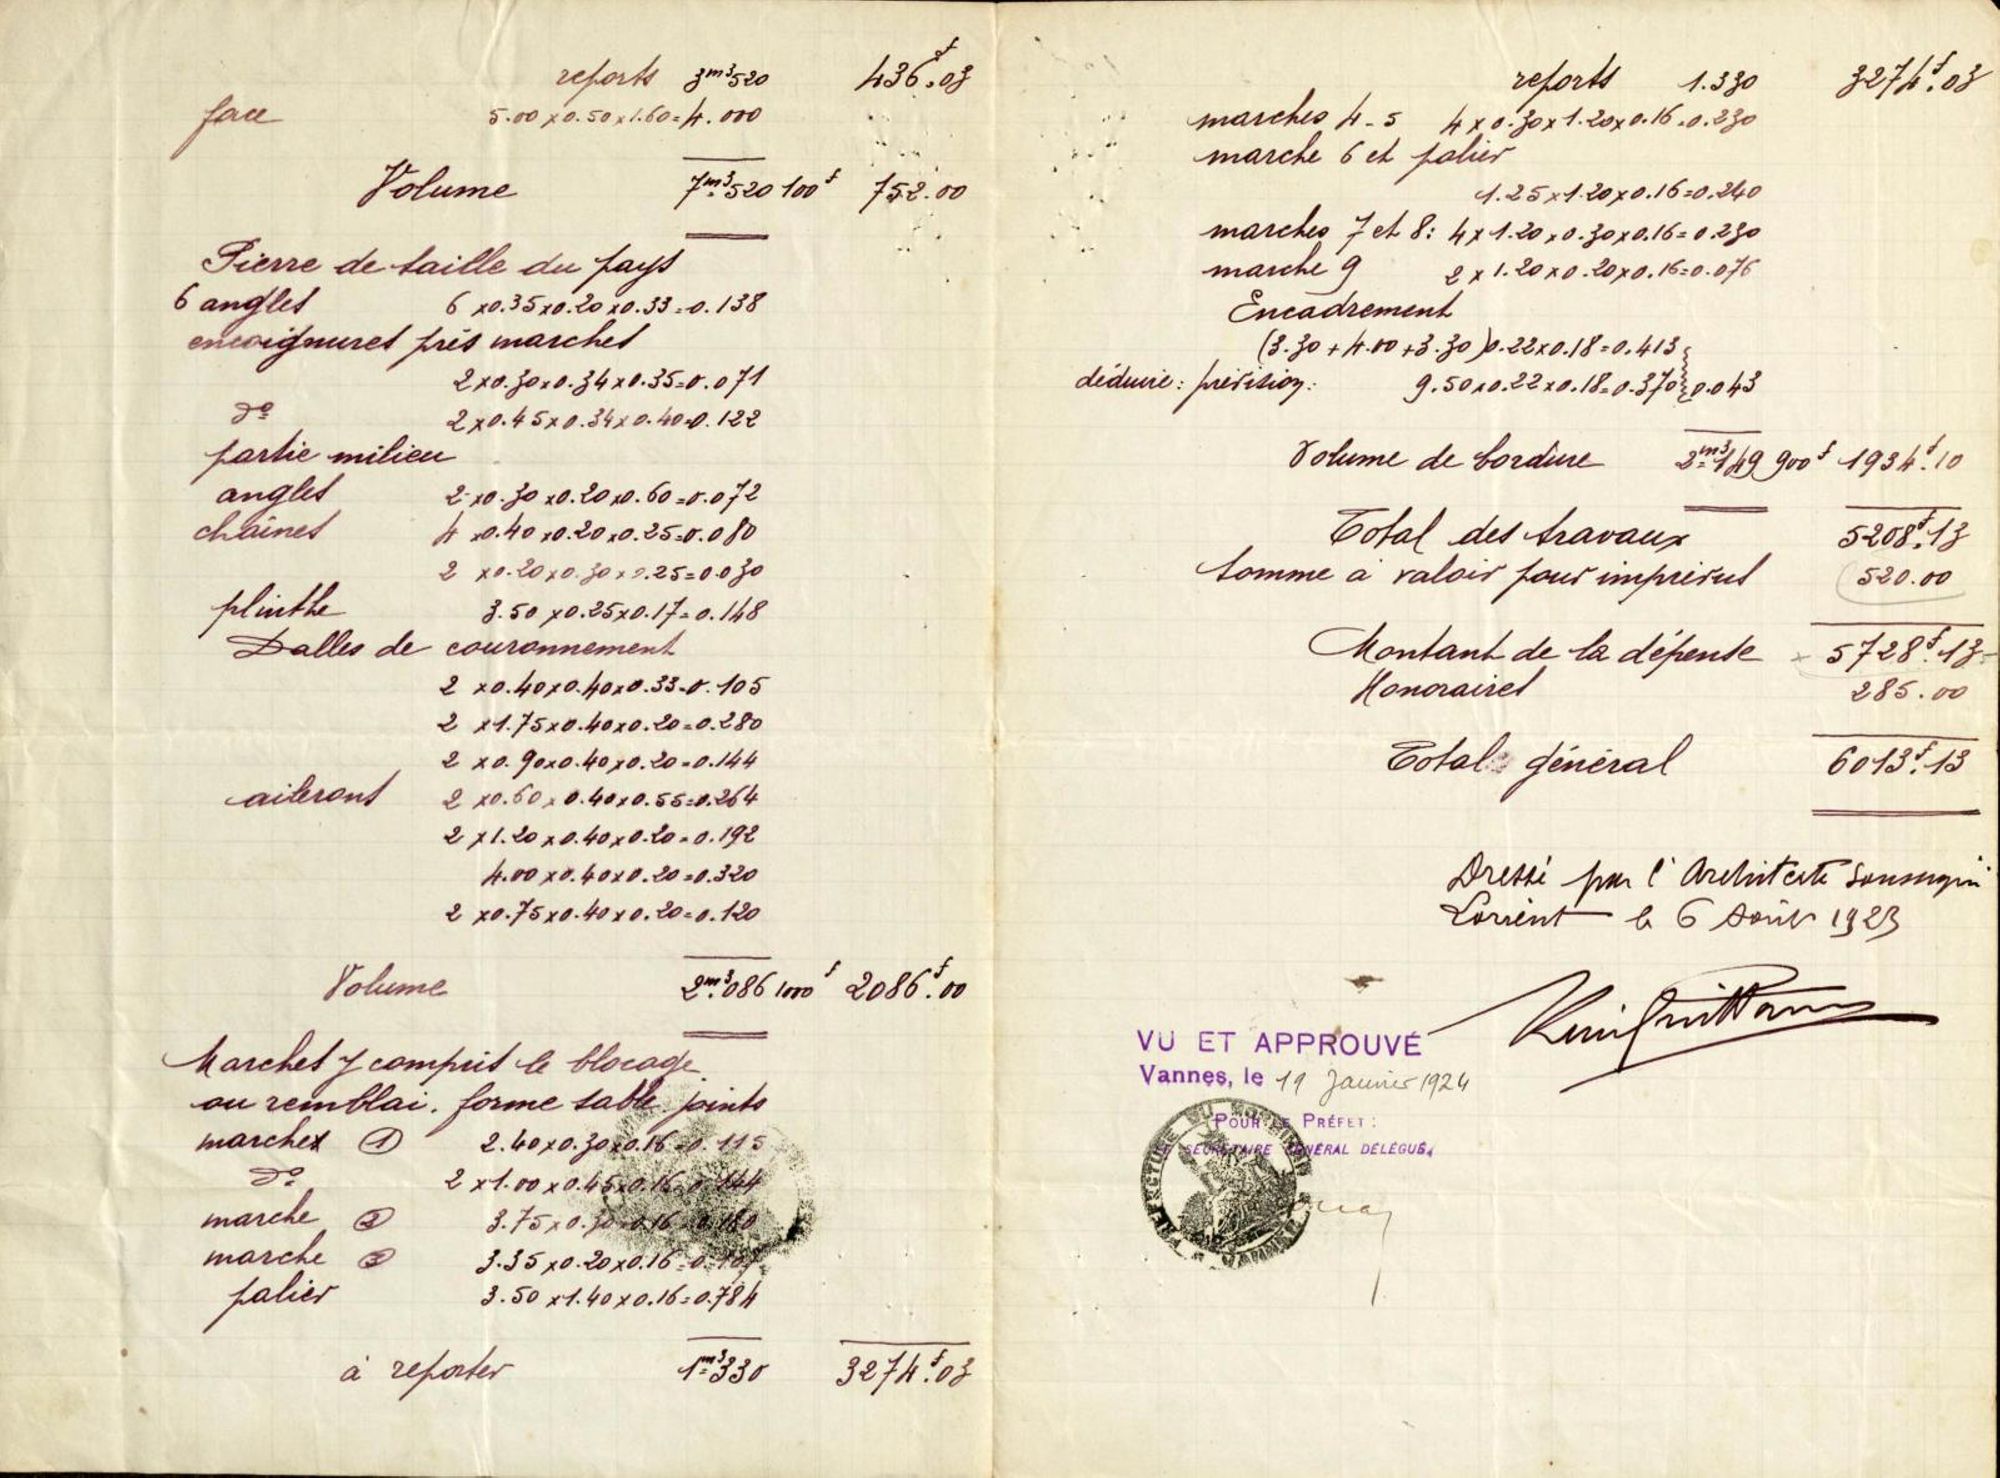 reports 3m³520 436f.03
face 5.00x0.50x1.60=4.000
Volume 7m³520 100f 752.00
Pierre de taille du pays
6 angles 6 x0.35x0.20x0.33=0.138
encoignures près marches
2x0.30x0.34x0.35=0.071
dº 2x0.45x0.34x0.40=0.122
partie milieu
angles 2x0.30x0.20x0.60=0.072
chaînes 4x0.40x0.20x0.25=0.080
2 x0.20x0.30x0.25=0.030
plinthe 3.50x0.25x0.17=0.148
Dalles de couronnement
2 x0.40x0.40x0.33=0.105
2 x1.75x0.40x0.20=0.280
2 x0.90x0.40x0.20=0.144
ailerons 2 x0.60x0.40x0.55=0.264
2 x1.20x0.40x0.20=0.192
4.00x0.40x0.20=0.320
2 x0.75x0.40x0.20=0.120
Volume 2m³.086 1000f 2086f.00
Marches y compris le blocage
ou remblai. forme sable. joints
marches ① 2.40x0.30x0.16=0.115
dº 2x1.00x0.45x0.16=0.144
marche ② 3.75x0.30x0.16=0.180
marche ③ 3.35x0.20x0.16=0.107
palier 3.50x1.40x0.16=0.784
à reporter 1m³330 3274f.03
reports 1.330 3274f.03
marches 4-5 4x0.30x1.20x0.16=0.230
marche 6 et palier
1.25x1.20x0.16=0.240
marches 7 et 8: 4x1.20x0.30x0.16=0.230
marche 9 2x1.20x0.20x0.16=0.076
Encadrement
(3.30+4.00+3.30)0.22x0.18=0.413
déduire: prévision: 9.50x0.22x0.18=0.370 0.043
Volume de bordure 2m³149 900f 1934f.10
Total des travaux 5208f.13
Somme à valoir pour imprévus 520.00
Montant de la dépense 5728f.13
Honoraires 285.00
Total général 6013f.13
Dressé par l'Architecte soussigné
Lorient le 6 Août 1923
VU ET APPROUVÉ
Vannes, le 19 Janvier 1924
POUR LE PRÉFET:
LE SECRÉTAIRE GÉNÉRAL DÉLÉGUÉ,